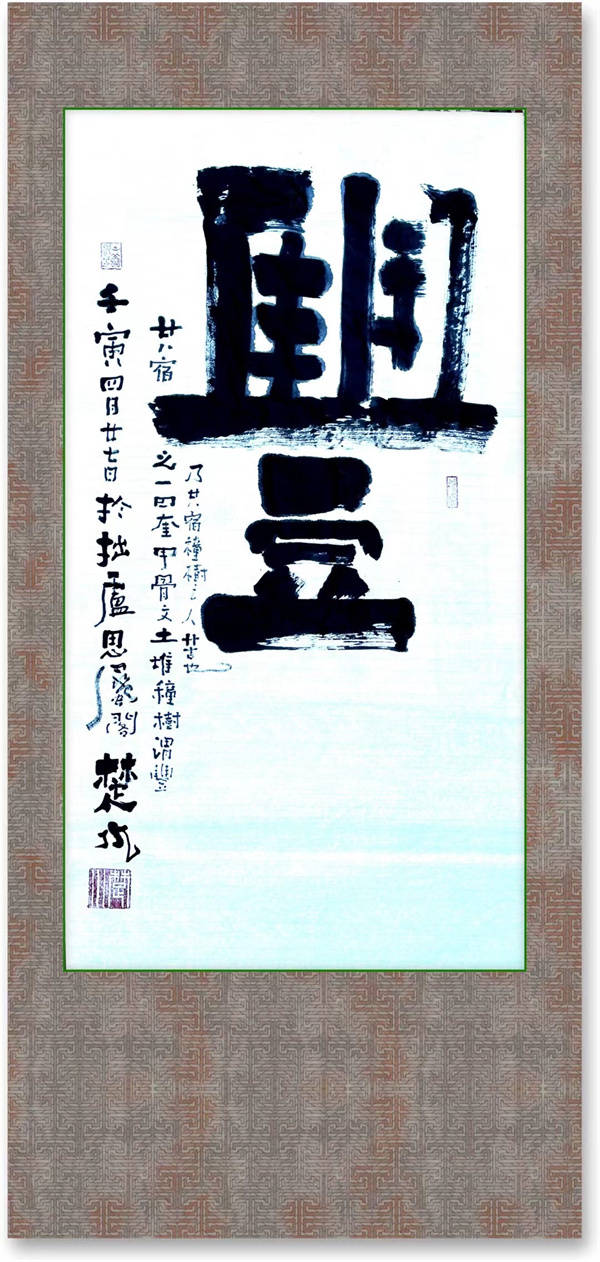 豐
廿八宿之一四奎甲骨文土堆種樹謂豐
乃廿八宿種樹之人也
壬寅四月廿七日於拙廬思閣 楚